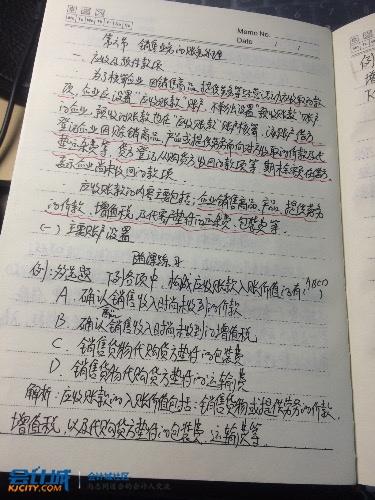 Memo No.
Date / /
第六节 销售业务的账务处理
一、应收及预付款项
为了核算企业因销售商品、提供劳务等经营活动应收取的款
项，企业应设置"应收账款"账户，不单独设置"预收账款"账户
的企业，预收的账款也在"应收账款"账户核算，该账户借方
登记企业因赊销商品、产品或提供劳务而应向对方收取的价款及代
垫运杂费等，贷方登记从购货方收回的款项等，期末余额在借方，
表示企业尚未收回的款项
应收账款的内容主要包括：企业销售商品、产品、提供劳务
的价款、增值税，及代垫付的运杂费、包装费等。
(一) 主要账户设置
随课练习
例：多选题 下列各项中，构成应收账款入账价值的有：(ABCD)
A. 确认销售收入时尚未收到的价款
B. 确认商品销售收入时尚未收到的增值税
C. 销售货物代购货方垫付的包装费
D. 销售货物代购货方垫付的运输费
解析：应收账款的入账价值包括：销售货物或提供劳务的价款、
增值税，以及代购货方垫付的包装费、运输费等。
会计城
KJCITY.COM
会计城社区